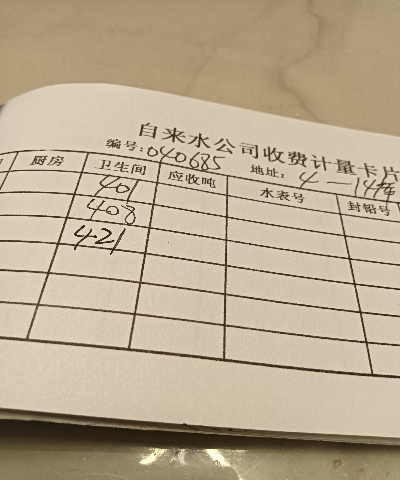 自来水公司收费计量卡片
编号:040685 地址: 4-14
厨房 卫生间 应收吨 水表号 封铅号
401
408
421